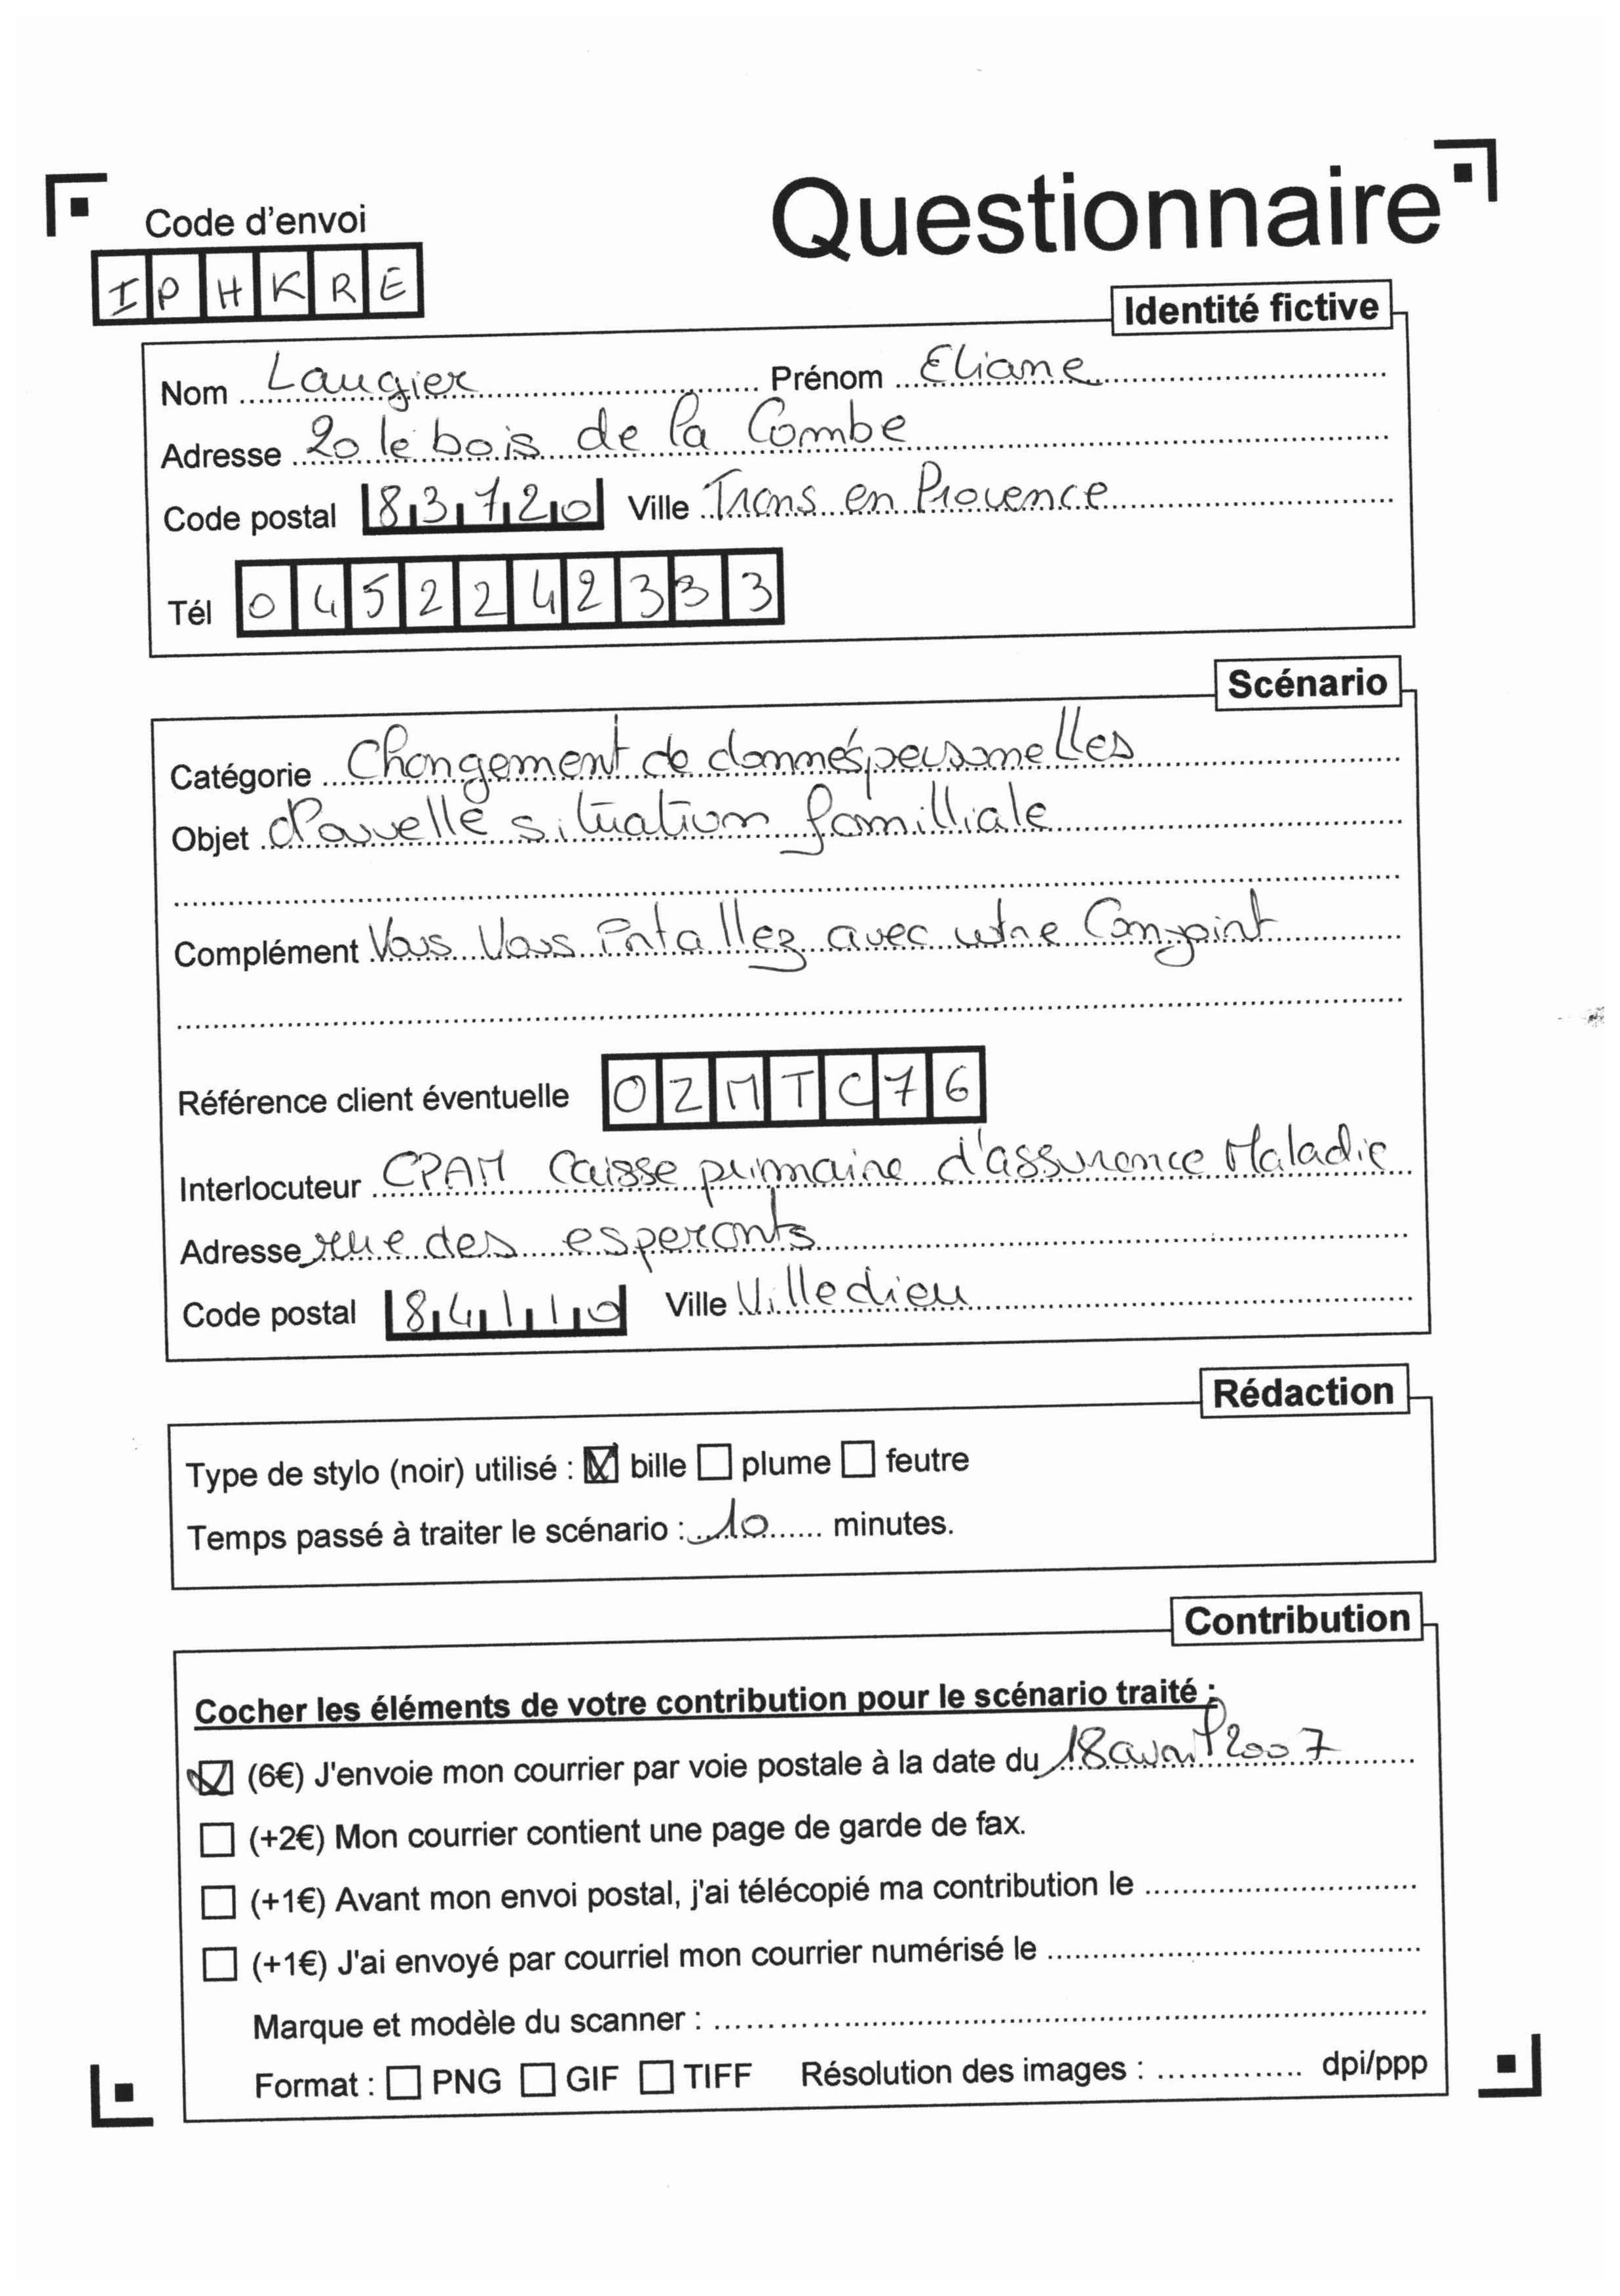 Questionnaire
Code d'envoi
IPHKRE
Identité fictive
Nom Laugier Prénom Eliane
Adresse 20 le bois de la Combe
Code postal 83720 Ville Trans en Provence
Tél 0452242333
Scénario
Catégorie Changement de données personnelles
Objet Nouvelle situation familliale
Complément Vous Vous intallez avec votre Conjoint
Référence client éventuelle OZMTC76
Interlocuteur CPAM Caisse primaire d'assurance Maladie
Adresse rue des esperants
Code postal 84110 Ville Villedieu
Rédaction
Type de stylo (noir) utilisé : bille plume feutre
Temps passé à traiter le scénario : 10 minutes.
Contribution
Cocher les éléments de votre contribution pour le scénario traité :
(6€) J'envoie mon courrier par voie postale à la date du 18 avril 2007
(+2€) Mon courrier contient une page de garde de fax.
(+1€) Avant mon envoi postal, j'ai télécopié ma contribution le
(+1€) J'ai envoyé par courriel mon courrier numérisé le
Marque et modèle du scanner :
Format : PNG GIF TIFF Résolution des images : dpi/ppp